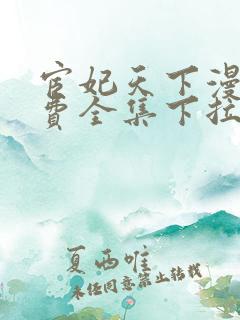 宦妃天下漫
费全集下拉
夏西唯
未经同意禁止转载